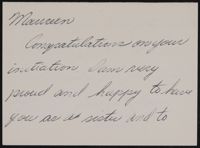 Maureen
Congratulations on your
initiation. I am very
proud and happy to have
you as a sister and to